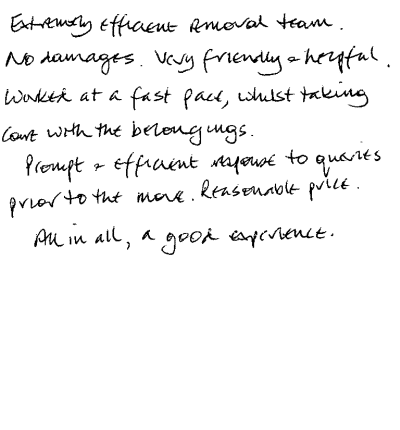 Extremely efficient removal team.
No damages. Very friendly & helpful.
Worked at a fast pace, whilst taking
care with the belongings.
Prompt & efficient response to queries
prior to the move. Reasonable price.
All in all, a good experience.